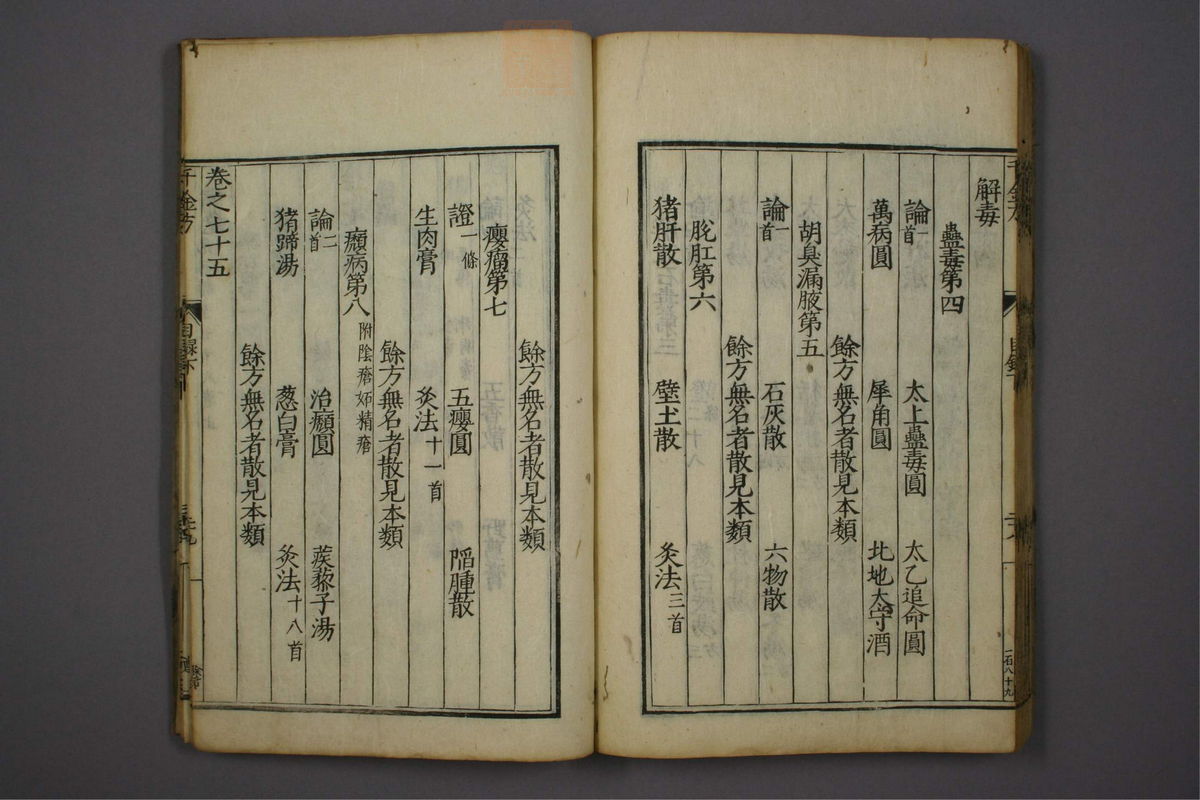 解毒
蠱毒第四
論一首 太上蠱毒圓 太乙追命圓
萬病圓 犀角圓 北地太守酒
餘方無名者散見本類
胡臭漏腋第五
論一首 石灰散 六物散
餘方無名者散見本類
脫肛第六
猪肝散 壁土散 灸法三首
餘方無名者散見本類
癭瘤第七
證一條 五癭圓 陷腫散
生肉膏 灸法十一首
餘方無名者散見本類
㿗病第八附陰瘡妬精瘡
論二首 治㿗圓 蒺藜子湯
猪蹄湯 葱白膏 灸法十八首
餘方無名者散見本類
卷之七十五
千金方 目録下